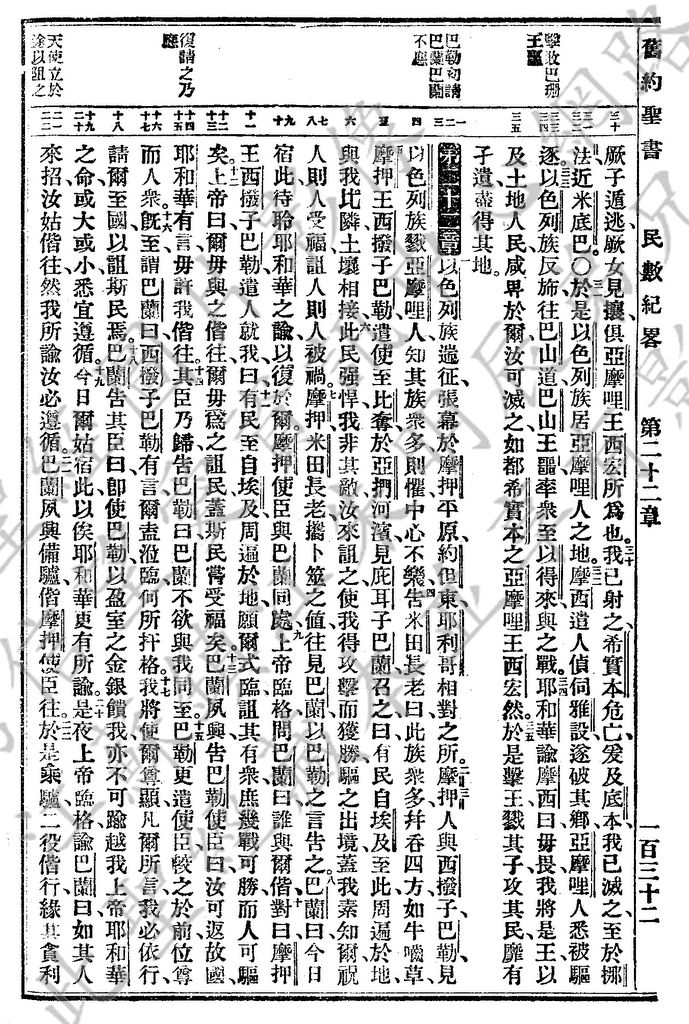 舊約聖書 民數紀畧 第二十二章 一百三十二
擊敗巴珊
王噩
巴勒初請
巴蘭巴蘭
不應
復請之乃
應
天使立於
三十
三一
三二
三三
三四
三五
一
二
三
四
五
六
七
八
九
十
十一
十二
十三
十四
十五
十六
十七
十八
十九
二十
二一
二二
厥子遁逃、厥女見擄、俱亞摩哩王西宏所爲也。我已射之、希實本危亡、爰及底本、我已滅之、至於挪
法、近米底巴。〇於是以色列族居亞摩哩人之地。摩西遣人偵伺雅設、遂破其鄉、亞摩哩人悉被驅
逐。以色列族反斾往巴山道、巴山王噩率衆至以得來、與之戰。耶和華諭摩西曰、毋畏、我將是王、以
及土地人民、咸畀於爾、汝可滅之、如都希實本之亞摩哩王西宏然。於是擊王、戮其子、攻其民、靡有
孑遺、盡得其地。
第二十二章 以色列族遄征、張幕於摩押平原、約但東、耶利哥相對之所。摩押人與西撥子巴勒、見
以色列族戮亞摩哩人、知其族衆多、則懼、中心不樂。告米田長老曰、此族衆多、幷吞四方、如牛嚙草。
摩押王西撥子巴勒、遣使至比奪、於亞捫河濱、見庇耳子巴蘭、召之曰、有民自埃及至此、周遍於地、
與我比隣、土壤相接。此民强悍、我非其敵、汝來詛之、使我得攻擊而獲勝、驅之出境、蓋我素知爾祝
人則人受福、詛人則人被禍。摩押米田長老、攜卜筮之値、往見巴蘭、以巴勒之言告之。巴蘭曰、今日
宿此、待聆耶和華之諭、以復於爾。摩押使臣與巴蘭同處。上帝臨格、問巴蘭曰、誰與爾偕、對曰、摩押
王西撥子巴勒遣人就我、曰、有民至自埃及、周遍於地、願爾式臨、詛其有衆、庶幾戰可勝、而人可驅
矣。上帝曰、爾毋與之偕往、爾毋爲之詛民、蓋斯民嘗受福矣。巴蘭夙興、告巴勒使臣曰、汝可返故國、
耶和華有言、毋許我偕往。其臣乃歸、告巴勒曰、巴蘭不欲與我同至。巴勒更遣使臣、較之於前、位尊
而人衆。旣至、謂巴蘭曰、西撥子巴勒有言、爾盍涖臨、何所扞格、我將使爾尊顯、凡爾所言、我必依行、
請爾至國、以詛斯民焉。巴蘭告其臣曰、卽使巴勒以盈室之金銀饋我、亦不可踰越我上帝耶和華
之命、或大或小、悉宜遵循。今日爾姑宿此、以俟耶和華更有所諭。是夜上帝臨格、諭巴蘭曰、如其人
來招汝、姑偕往、然我所諭、汝必遵循。巴蘭夙興、備驢、偕摩押使臣往。於是乘驢、二役偕行、緣其貪利、